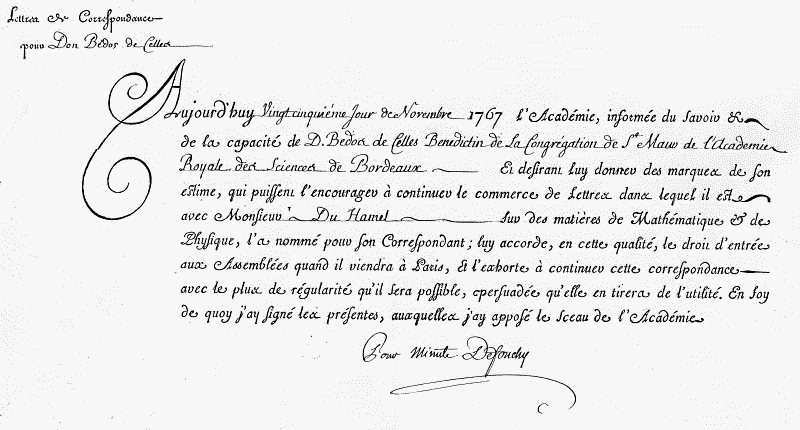 Lettres de Correspondance
pour Don Bedos de Celles
Aujourd'huy Vingtcinquiéme Jour de Novembre 1767 l'Académie, informée du savoir &
de la capacité de D. Bedos de Celles Benedictin de La Congrégation de St Maur de l'Academie
Royale des Sciences de Bordeaux Et desirant luy donner des marques de son
estime, qui puissent l'encourager à continuer le commerce de Lettres dans lequel il est
avec Monsieur Du Hamel sur des matières de Mathématique & de
Physique, l'a nommé pour son Correspondant; luy accorde, en cette qualité, le droit d'entrée
aux Assemblées quand il viendra à Paris, & l'exhorte à continuer cette correspondance
avec le plus de régularité qu'il sera possible, persuadée qu'elle en tirera de l'utilité. En foy
de quoy j'ay signé les présentes, auxquelles j'ay apposé le Sceau de l'Académie
Pour Minute Defouchy